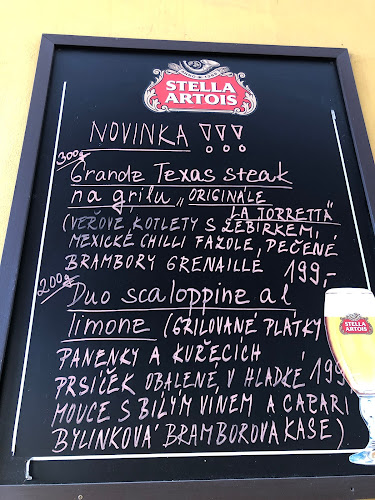 STELLA
ARTOIS
NOVINKA !!!
300g
Grande Texas steak
na grilu „ORIGINALE
LA TORRETTA"
(VEŘOVÉ KOTLETY S ŽEBÍRKEM,
MEXICKÉ CHILLI FAZOLE, PEČENÉ
BRAMBORY GRENAILLE 199,-
200g
Duo scaloppine al
limone (GRILOVANÉ PLÁTKY
PANENKY A KUŘECÍCH
PRSÍČEK OBALENÉ V HLADKÉ 199
MOUCE S BÍLÝM VÍNEM A CAPARI
BYLINKOVÁ BRAMBOROVA KAŠE)
STELLA
ARTOIS